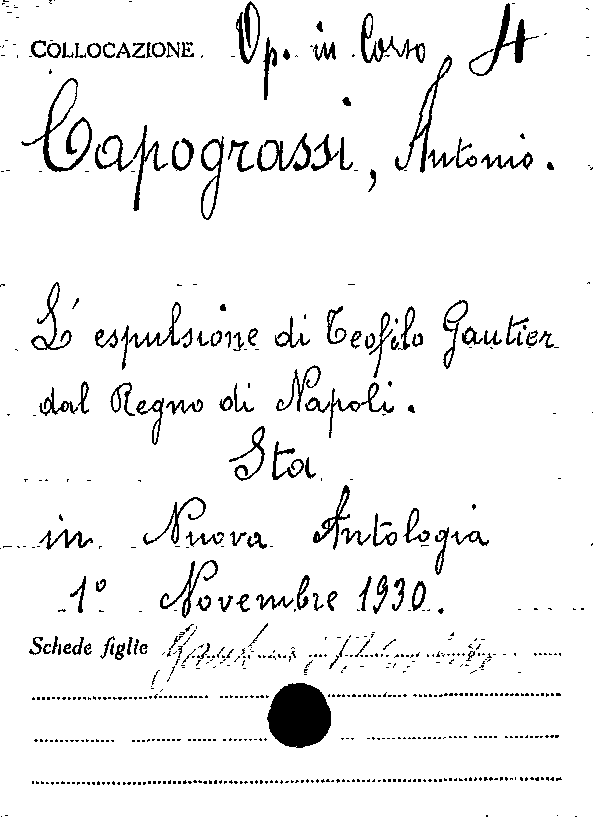 COLLOCAZIONE Op. in Corso 4
Capograssi, Antonio.
L' espulsione di Teofilo Gautier
dal Regno di Napoli.
Sta
in Nuova Antologia
1° Novembre 1930.
Schede figlie